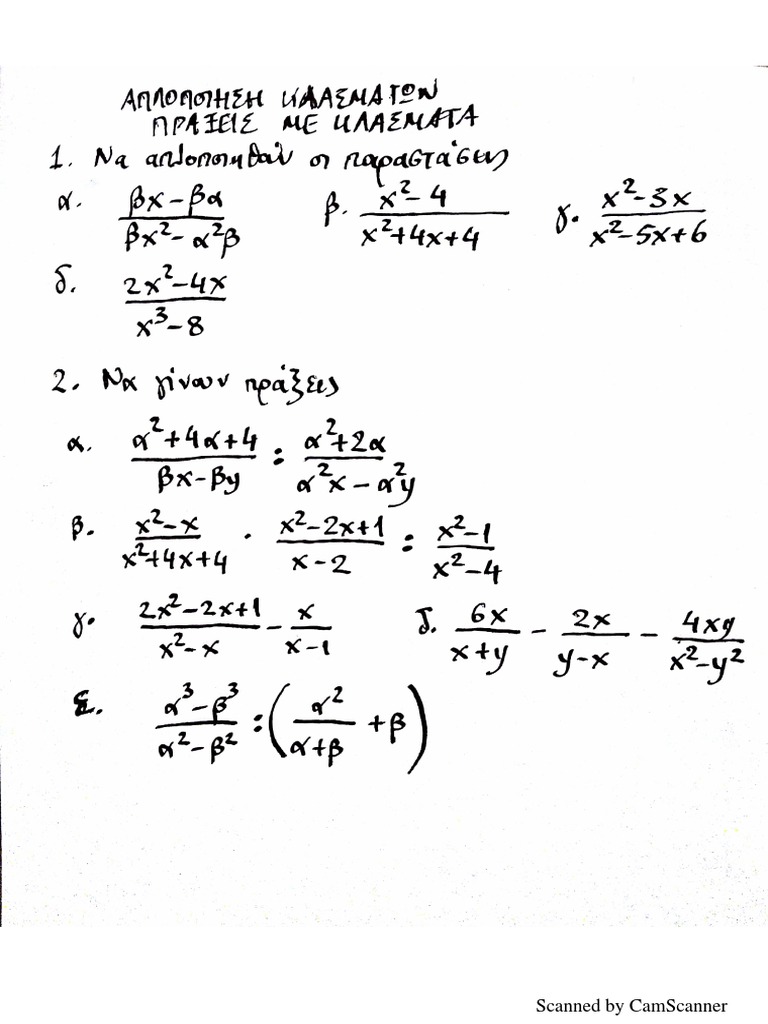 ΑΠΛΟΠΟΙΗΣΗ ΚΛΑΣΜΑΤΩΝ
ΠΡΑΞΕΙΣ ΜΕ ΚΛΑΣΜΑΤΑ
1. Να απλοποιηθούν οι παραστάσεις
α. (βx-βα)/(βx²-α²β) β. (x²-4)/(x²+4x+4) γ. (x²-3x)/(x²-5x+6)
δ. (2x²-4x)/(x³-8)
2. Να γίνουν πράξεις
α. (α²+4α+4)/(βx-βy) : (α²+2α)/(α²x-α²y)
β. (x²-x)/(x²+4x+4) · (x²-2x+1)/(x-2) : (x²-1)/(x²-4)
γ. (2x²-2x+1)/(x²-x) - x/(x-1) δ. 6x/(x+y) - 2x/(y-x) - 4xy/(x²-y²)
ε. (α³-β³)/(α²-β²) : (α²/(α+β) + β)
Scanned by CamScanner